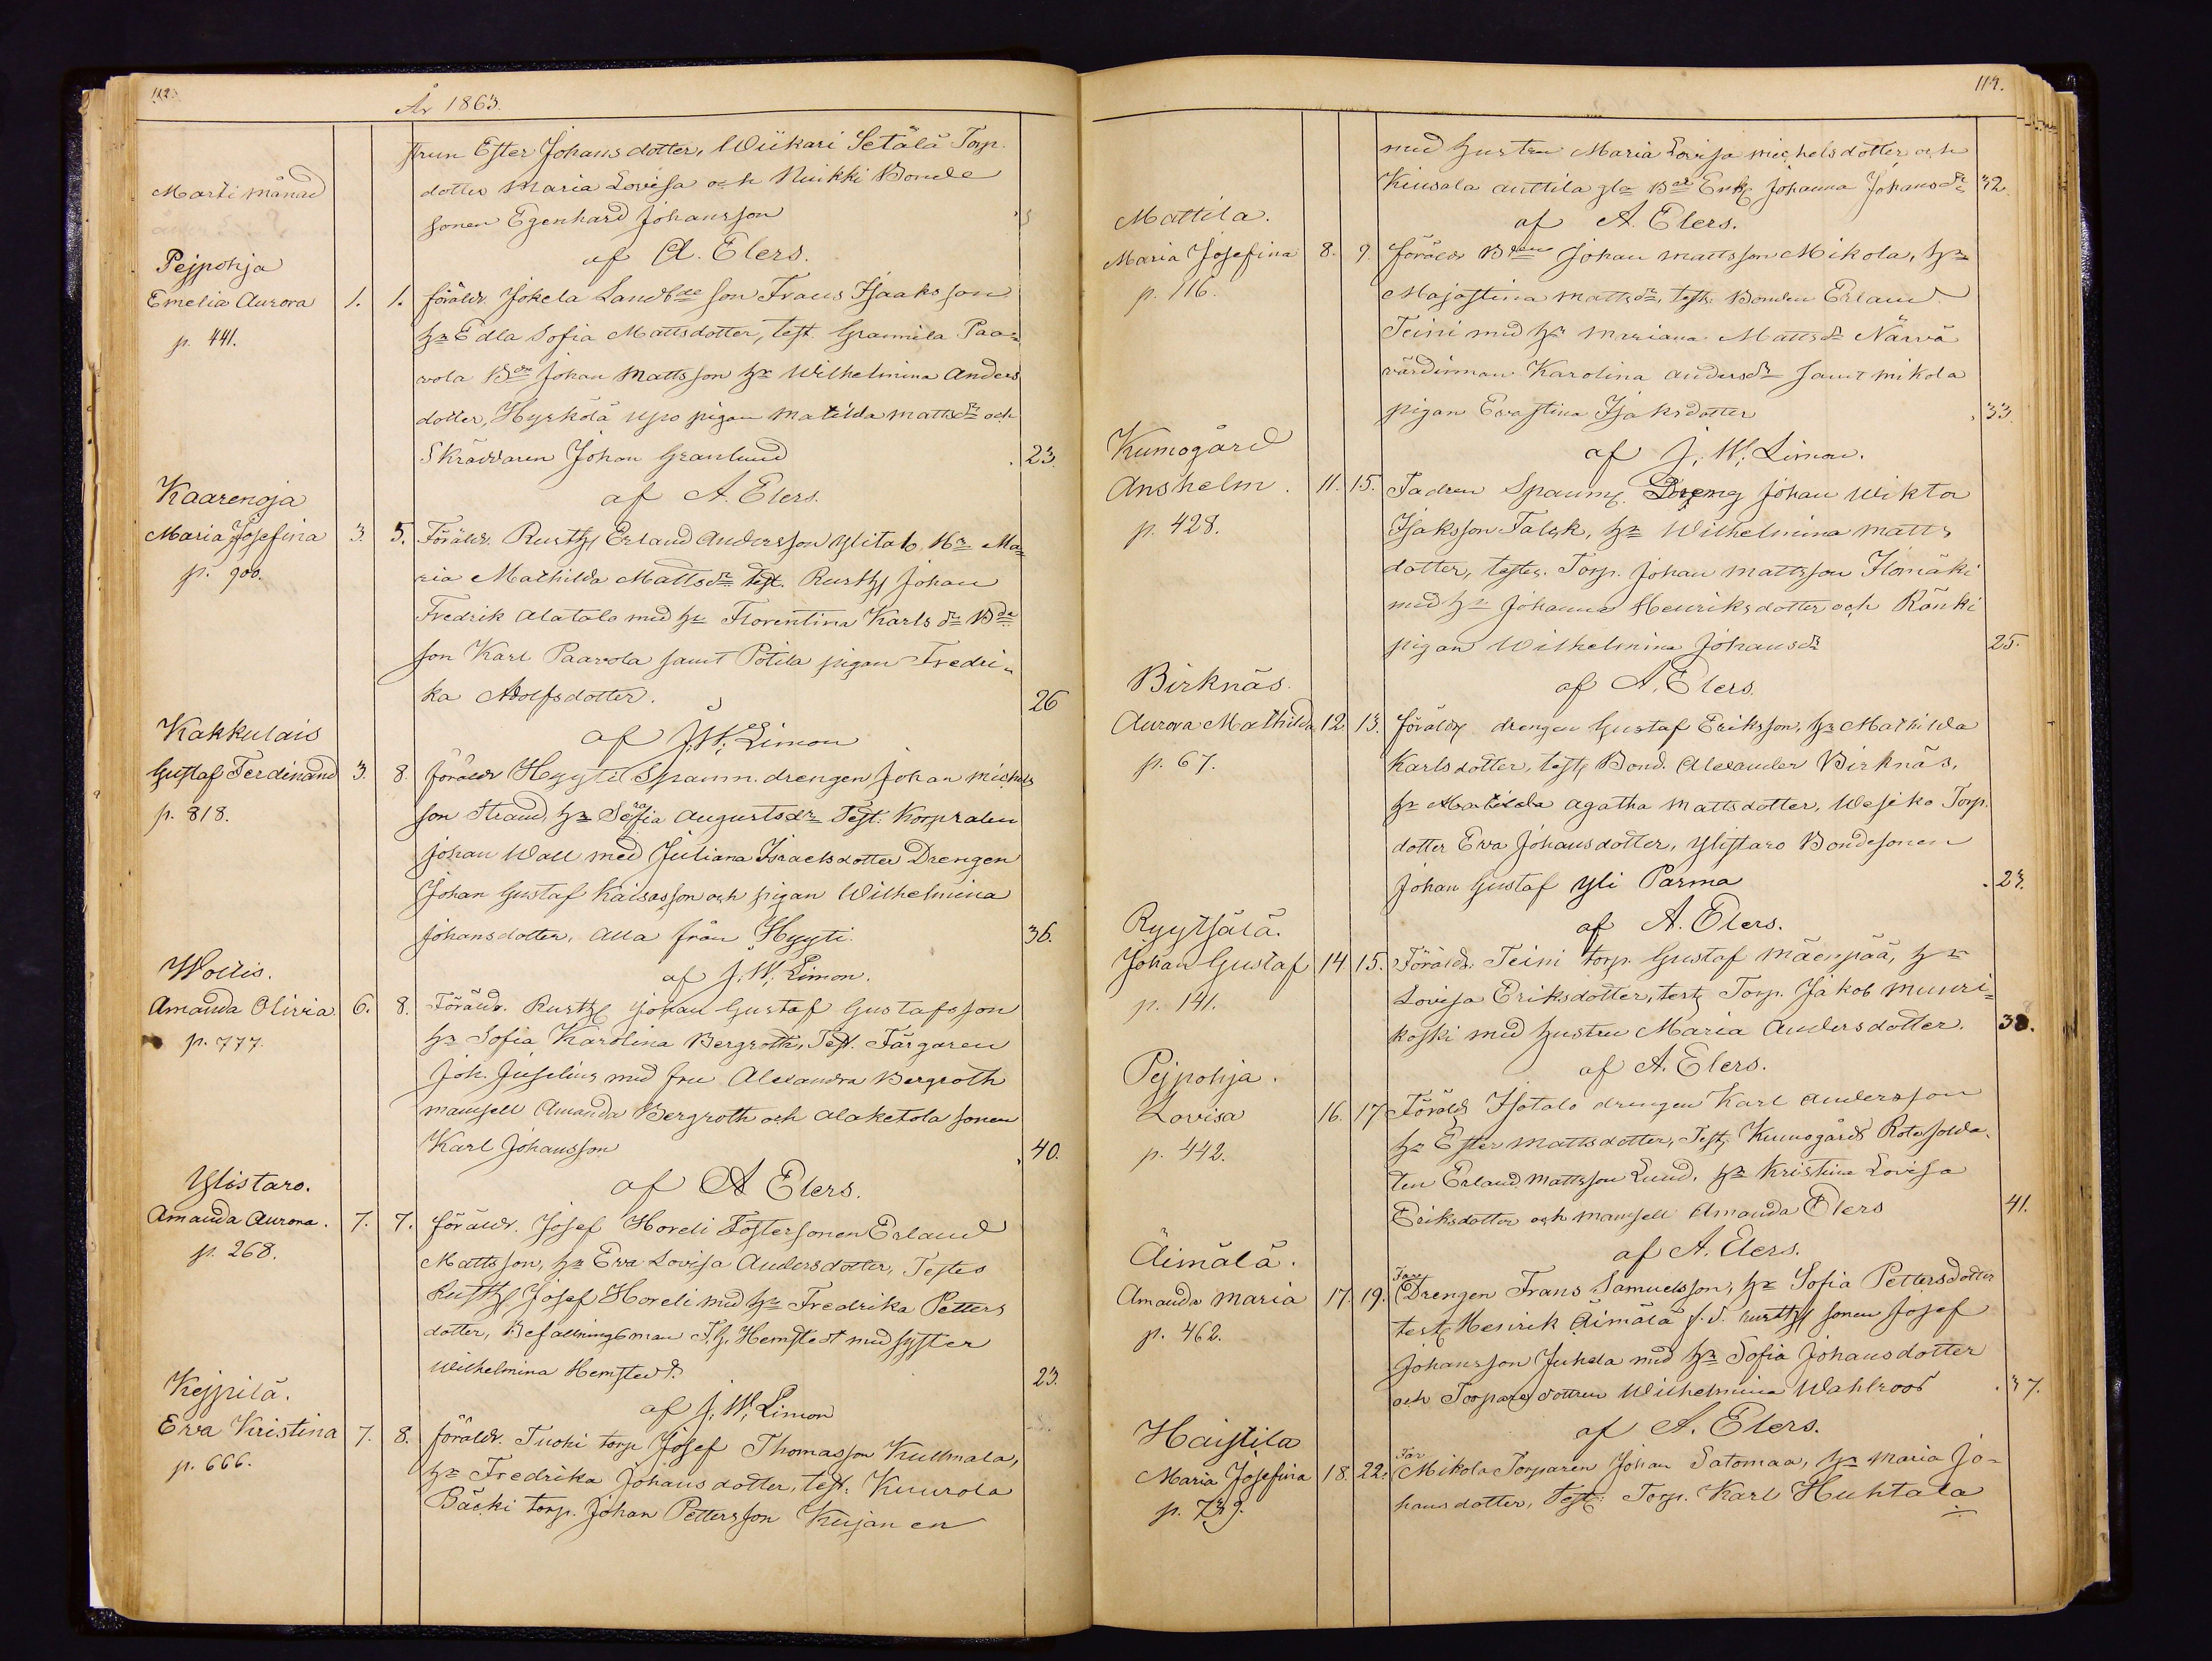 År 1863.
hustrun Ester Johansdotter, Wiikari Setälä Torp.
dotter Maria Lovisa och Bonde
sonen Egenhard Johansson
Marti månad
af A. Elers.
Pejpohja
Emelia Aurora 1. 1. föräldr. Jokela Landbde son Frans Isaaksson
p. 441.
hr Edla Sofia Mattsdotter, test. Grannila Paa=
vola Bdn Johan Mattsson hr Wilhelmina Anders
dotter, Hyrkölä Upo pigan Matilda Mattsdr och
Skräddaren Johan Granlund 23.
af A. Elers.
Kaarenoja
Maria Josefina 3. 5. Föräldr. Rusth. Erland Andersson Ylitalo, Hr Ma=
p. 900.
ria Mathilda Mattsdr test. Rusth. Johan
Fredrik Alatalo med hr Florentina Karlsdr Bde
son Karl Paavola samt Potila pigan Fredri=
ka Adolfsdotter. 26
af J. W. Limon
Kakkulais
Gustaf Ferdinand 3. 8. föräldr Hyyti Spanm. drengen Johan Michels
p. 818.
son Strand, hr Sofia Augustsdr Test. Korpralen
Johan Wall med Juliana Israelsdotter Drengen
Johan Gustaf Kaisasson och pigan Wilhelmina
Johansdotter, alla från Hyyti. 36.
af J. W. Limon.
Wollis.
Amanda Olivia 6. 8. Föräldr. Rusth. Johan Gustaf Gustafsson
p. 777.
hr Sofia Karolina Bergroth, Test. Färgaren
Joh. Juselius med fru Alexandra Bergroth
mamsell Amanda Bergroth och Alaketola sonen
Karl Johansson 40.
af A Elers.
Ylistaro.
Amanda Aurora. 7. 7. föräldr. Josef Horeli Fostersonen Erland
p. 268.
Mattsson, hr Eva Lovisa Andersdotter, Testes
Rusth. Josef Horeli med hr Fredrika Petters
dotter, Befallningsman F. G. Hemstedt med syster
Wilhelmina Hemstedt. 23.
af J. W. Limon
Kejpilä.
Eva Kristina 7. 8. föräldr. Tuohi torp Josef Thomasson Kullmala,
p. 666.
hr Fredrika Johansdotter, test. Kuurola
Bäcki torp. Johan Pettersson Kujanen
119.
med hustru Maria Lovisa Michelsdotter och
Kiusala Anttila gla Bde Enk. Johanna Johansdr 32.
af A. Elers.
Mattila.
Maria Josefina 8. 9. föräldr Bden Johan Mattsson Mikola, hr
p. 116.
Majastina Mattsdr, test. Bonden Erland
Teini med hr Mariana Mattsdr Närvä
värdinnan Karolina Andersdr samt Mikola
pigan Evastina Isaksdotter 33.
af J. W. Limon.
Kumogård
Anshelm. 11. 15. Fadren Spanm. Dreng Johan Wiktor
p. 428.
Isaksson Falck, hr Wilhelmina Matts
dotter, testes. Torp. Johan Mattsson Ilomäki
med hr Johanna Henriksdotter och Ränki
pigan Wilhelmina Johansdr 25.
af A. Elers.
Birknäs.
Aurora Mathilda 12. 13. föräldr drengen Gustaf Eriksson, hr Mathilda
p. 67.
Karlsdotter, test. Bond. Alexander Birknäs,
hr Matilda Agatha Mattsdotter, Wesiko Torp.
dotter Eva Johansdotter, Ylistaro Bondesonen
Johan Gustaf Yli Parma 23.
af A. Elers.
Ryytsälä.
Johan Gustaf 14. 15. Föräldr. Teini torp. Gustaf Mäenpää, hr
p. 141.
Lovisa Eriksdotter, test. Torp. Jakob Muuri=
koski med hustru Maria Andersdotter. 38.
af A. Elers.
Pejpohja.
Lovisa 16. 17 Föräldr Isotalo drengen Karl Andersson
p. 442.
hr Ester Mattsdotter, Test. Kumogårds Rotesolda=
ten Erland Mattsson Lund, hr Kristina Lovisa
Eriksdotter och mamsell Amanda Elers 41.
af A. Elers.
Äimälä.
Amanda Maria 17. 19. Drengen Frans Samuelsson, hr Sofia Pettersdotter
p. 462.
test. Henrik Äimälä f. d. rusth. sonen Josef
Johansson Juhela med hr Sofia Johansdotter
och Torparedottren Wilhelmina Wahlroos 37.
af A. Elers.
Haistila
Maria Josefina 18. 22. Mikola Torparen Johan Satomaa, hr Maria Jo=
p. 739.
hansdotter, Test. Torp. Karl Huhtala